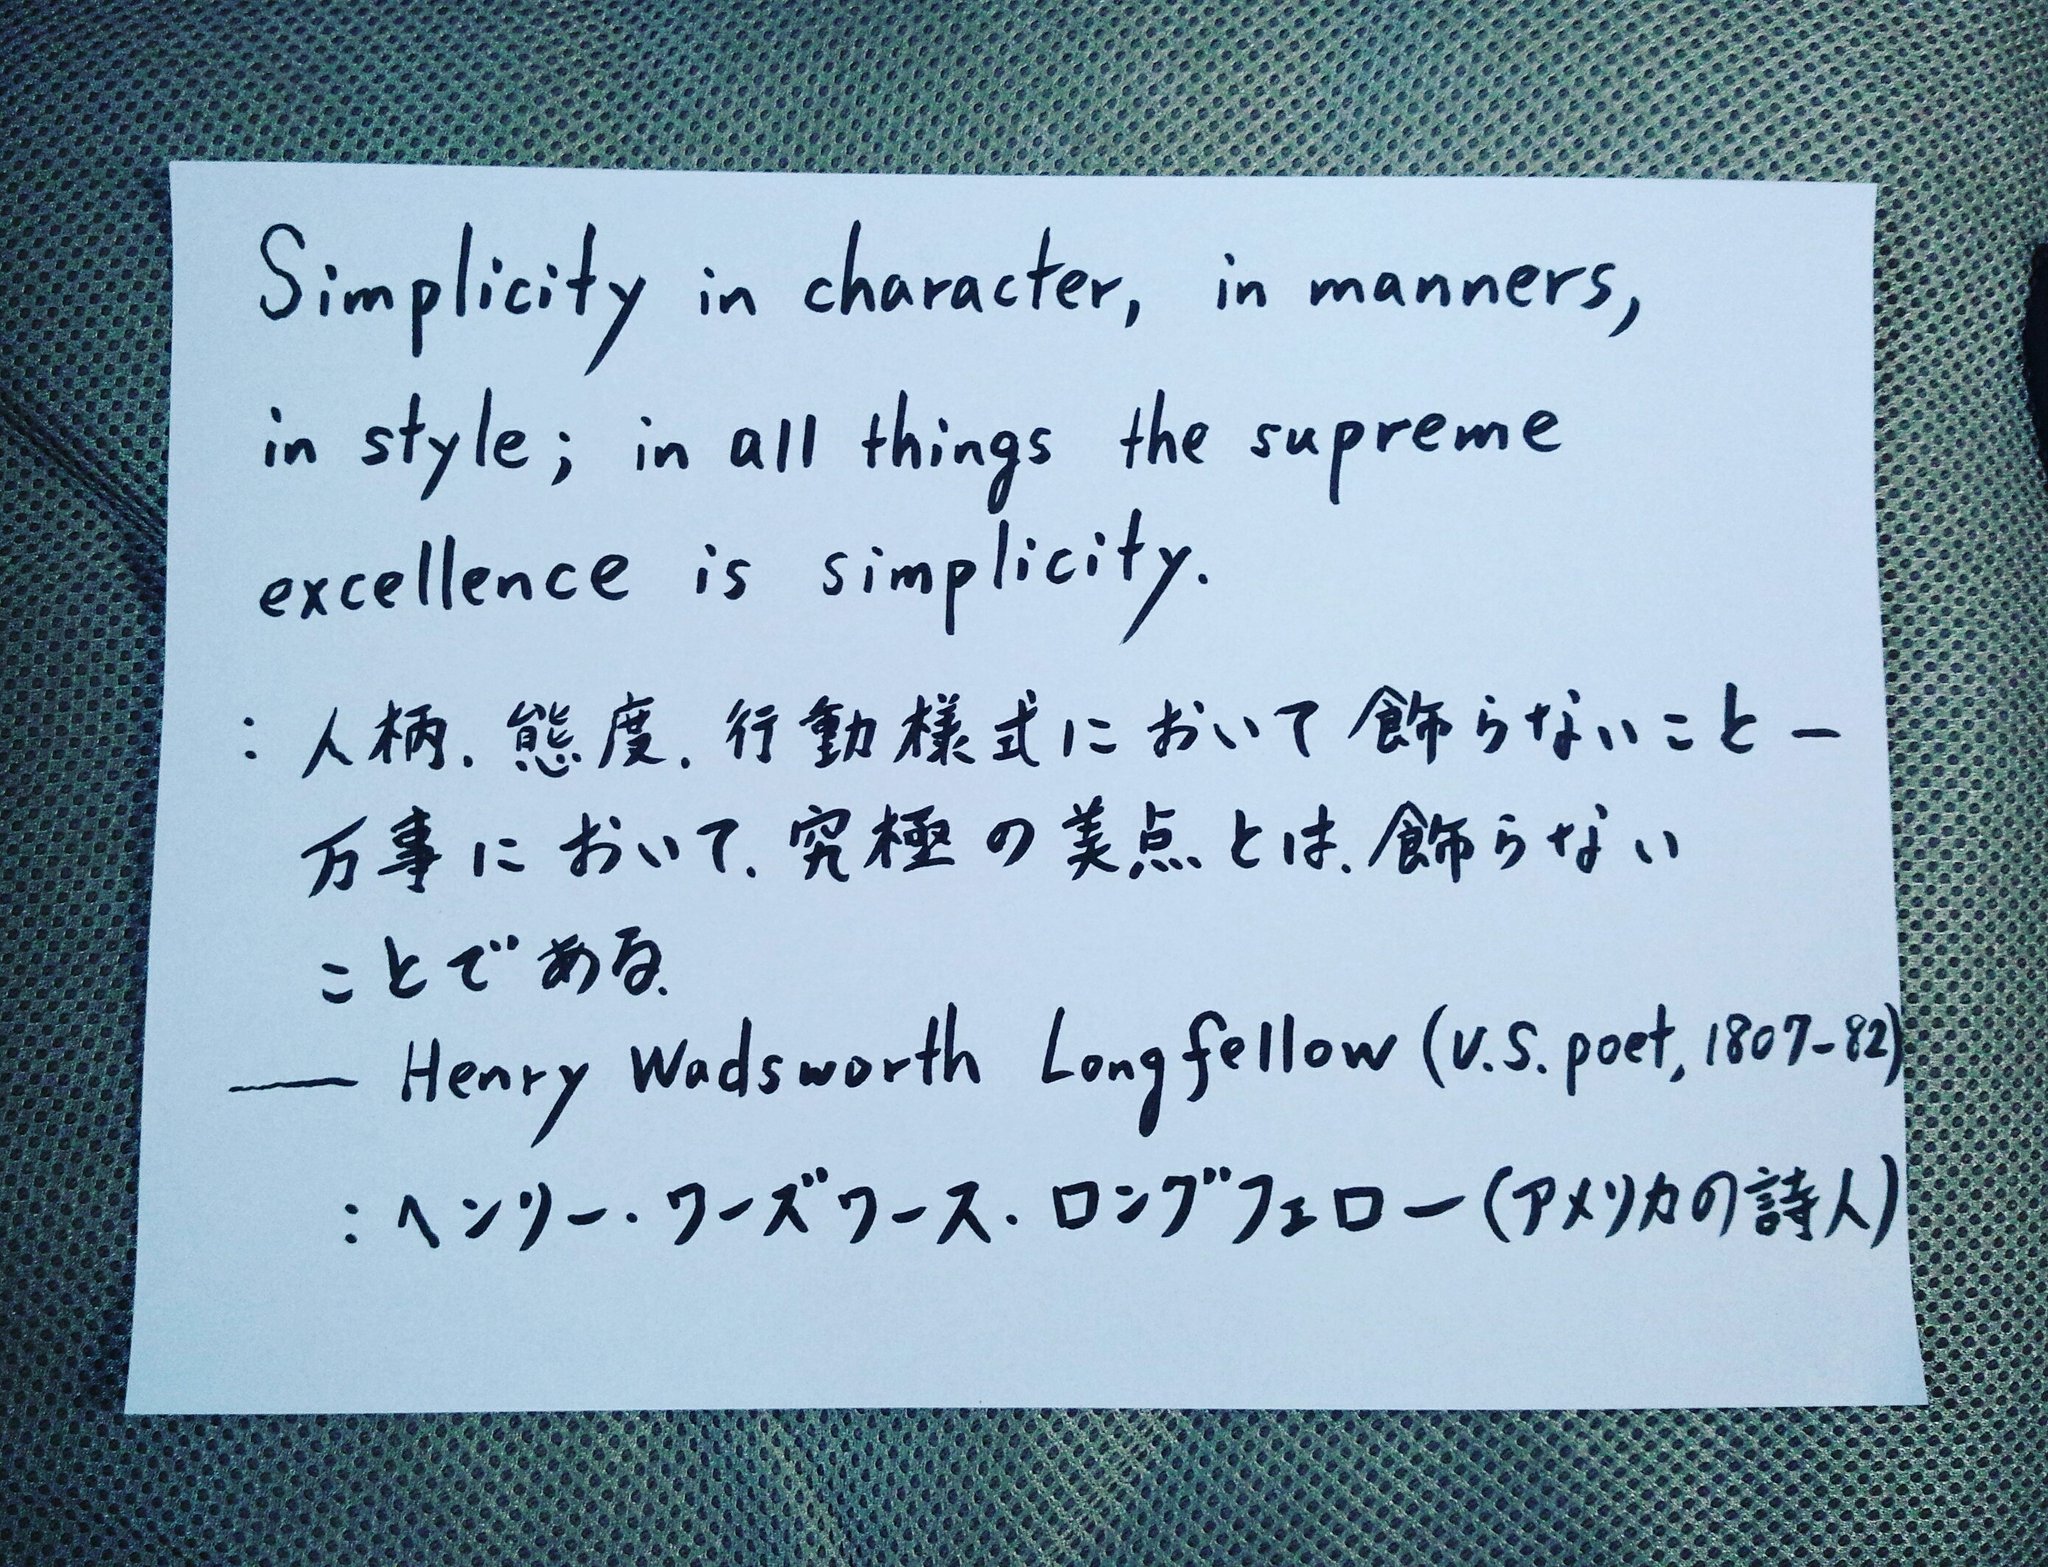 Simplicity in character, in manners,
in style; in all things the supreme
excellence is simplicity.
：人柄、態度、行動様式において飾らないことー
万事において、究極の美点とは、飾らない
ことである。
— Henry Wadsworth Longfellow (U.S. poet, 1807-82)
：ヘンリー・ワーズワース・ロングフェロー(アメリカの詩人)